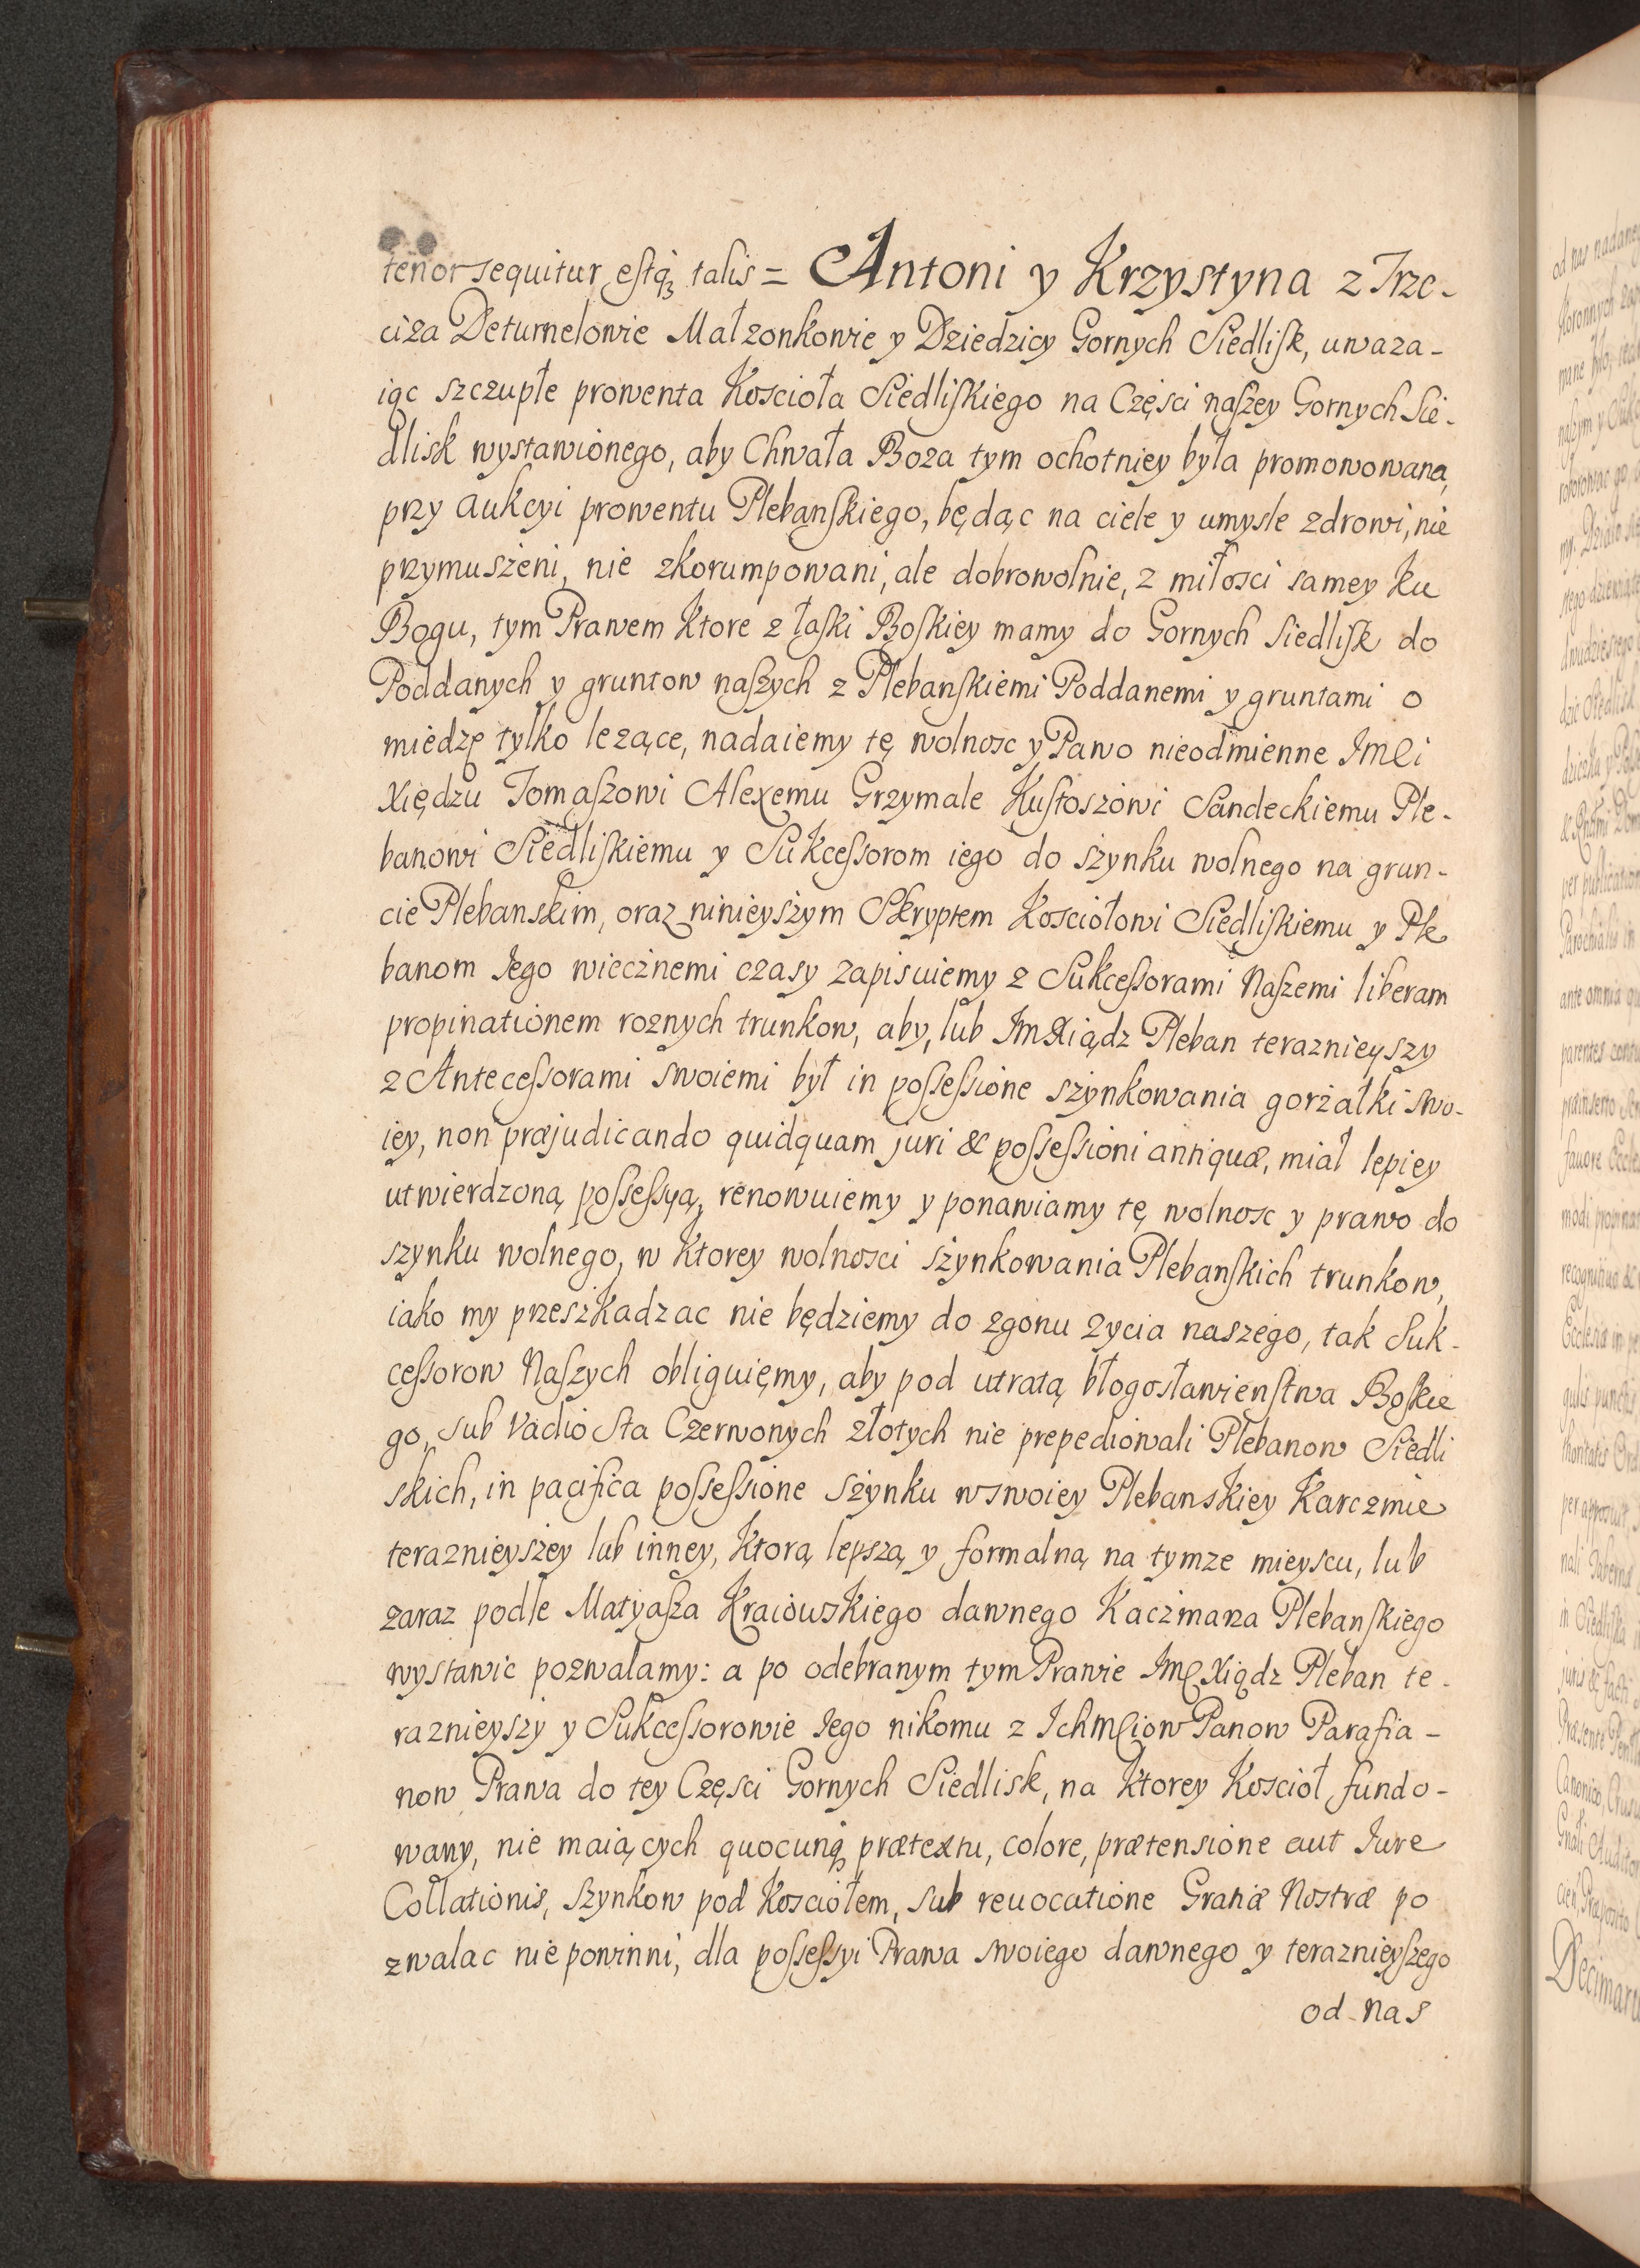 tenor sequitur estq₃ talis = Antoni y Krzystyna z Trzc-
ciza Deturnelowie Małzonkowie y Dziedzicy Gornych Siedlisk, uwaza-
iąc szczupłe prowenta Koscioła Siedliskiego na Częsci naszey Gornych Sie-
dlisk wystawionego, aby Chwała Boza tym ochotniey była promowowana,
przy aukcyi prowentu Plebanskiego, będąc na ciele y umysle zdrowi, nie
przymuszeni, nie zkorumpowani, ale dobrowolnie, z miłosci samey ku
Bogu, tym Prawem Ktore z łaski Boskiey mamy do Gornych Siedlisk do
Poddanych y gruntow naszych z Plebanskiemi Poddanemi y gruntami o
miedzę tylko lezące, nadaiemy tę wolnosc y Pawo nieodmienne Jmci
Xiędzu Tomaszowi Alexemu Grzymale Kustoszowi Sandeckiemu Ple-
banowi Siedliskiemu y Sukcessorom iego do szynku wolnego na grun-
cie Plebanskim, oraz ninieyszym Skryptem Kosciołowi Siedliskiemu y Ple
banom Jego wiecznemi czasy zapisuiemy z Sukcessorami Naszemi liberam
propinationem roznych trunkow, aby, lub Jm Xiądz Pleban teraznieyszy
z Antecessorami swoiemi był in possessione szynkowania gorzałki swo-
iey, non præjudicando quidquam juri & possessioni antiquæ, miał lepiey
utwierdzoną possessyą, renowuiemy y ponawiamy tę wolnosc y prawo do
szynku wolnego, w Ktorey wolnosci szynkowania Plebanskich trunkow,
iako my przeszkadzac nie będziemy do zgonu zycia naszego, tak Suk-
cessorow Naszych obliguięmy, aby pod utratą błogosławienstwa Boskie
go, sub vadio Sta Czerwonych złotych nie prepediowali Plebanow Siedli
skich, in pacifica possessione szynku w swoiey Plebanskiey Karczmie
teraznieyszey lub inney, Ktorą lepszą y formalną na tymze mieyscu, lub
zaraz podle Matyasza Kraiowskiego dawnego Kaczmarza Plebanskiego
wystawic pozwalamy: a po odebranym tym Prawie Jmc Xiądz Pleban te-
raznieyszy y Sukcessorowie Jego nikomu z Ichmciow Panow Parafia-
now Prawa do tey Częsci Gornych Siedlisk, na Ktorey Koscioł fundo-
wany, nie maiących quocunq₃ prætextu, colore, prætensione aut Jure
Collationis, szynkow pod Kosciołem, sub reuocatione Gratiæ Nostræ po
zwalac nie powinni, dla possessyi Prawa swoiego dawnego y teraznieyszego
od nas